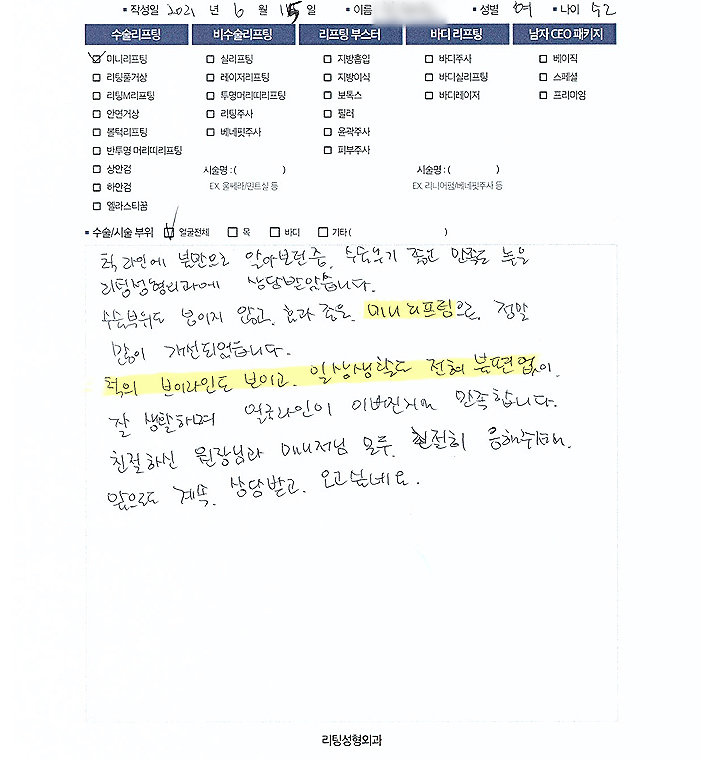 ▪ 작성일 2021 년 6 월 15 일 ▪ 이름 ▪ 성별 여 ▪ 나이 52
수술리프팅 비수술리프팅 리프팅 부스터 바디 리프팅 남자 CEO 패키지
미니리프팅 실리프팅 지방흡입 바디주사 베이직
리팅풀거상 레이저리프팅 지방이식 바디실리프팅 스페셜
리팅M리프팅 투명머리띠리프팅 보톡스 바디레이저 프리미엄
안면거상 리팅주사 필러
볼턱리프팅 베네핏주사 윤곽주사
반투명 머리띠리프팅 피부주사
상안검 시술명 : ( ) 시술명 : ( )
하안검 EX. 울쎄라/민트실 등 EX. 리니어펌/베네핏주사 등
엘라스티꿈
▪ 수술/시술 부위 얼굴전체 목 바디 기타 ( )
턱 라인에 불만으로 알아보던중, 수술후기 좋고 만족도 높은
리팅성형외과에 상담받았습니다.
수술부위도 보이지 않고, 효과 좋은 미니리프팅으로, 정말
많이 개선되었습니다.
턱의 브이라인도 보이고, 일상생활도 전혀 불편없이,
잘 생활하며 얼굴라인이 이뻐진거에 만족합니다.
친절하신 원장님과 매니저님 모두, 친절히 응해줘해,
앞으로도 계속, 상담받고, 오고싶네요.
리팅성형외과